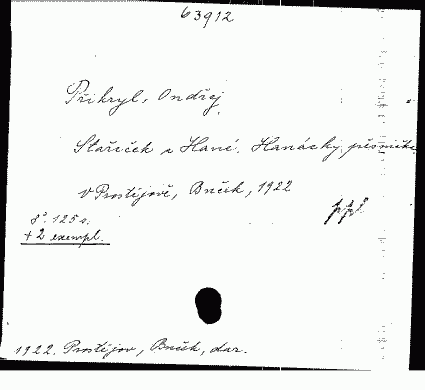 63912
Přikryl, Ondřej
Stařeček z Hané. Hanácky
v Prostějově, Buček, 1922
8°. 125 s.
+ 2 exempl.
1922. Prostějov, Buček, dar.